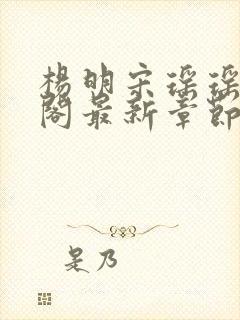 杨明宋瑶瑶
阁最新章节
是乃